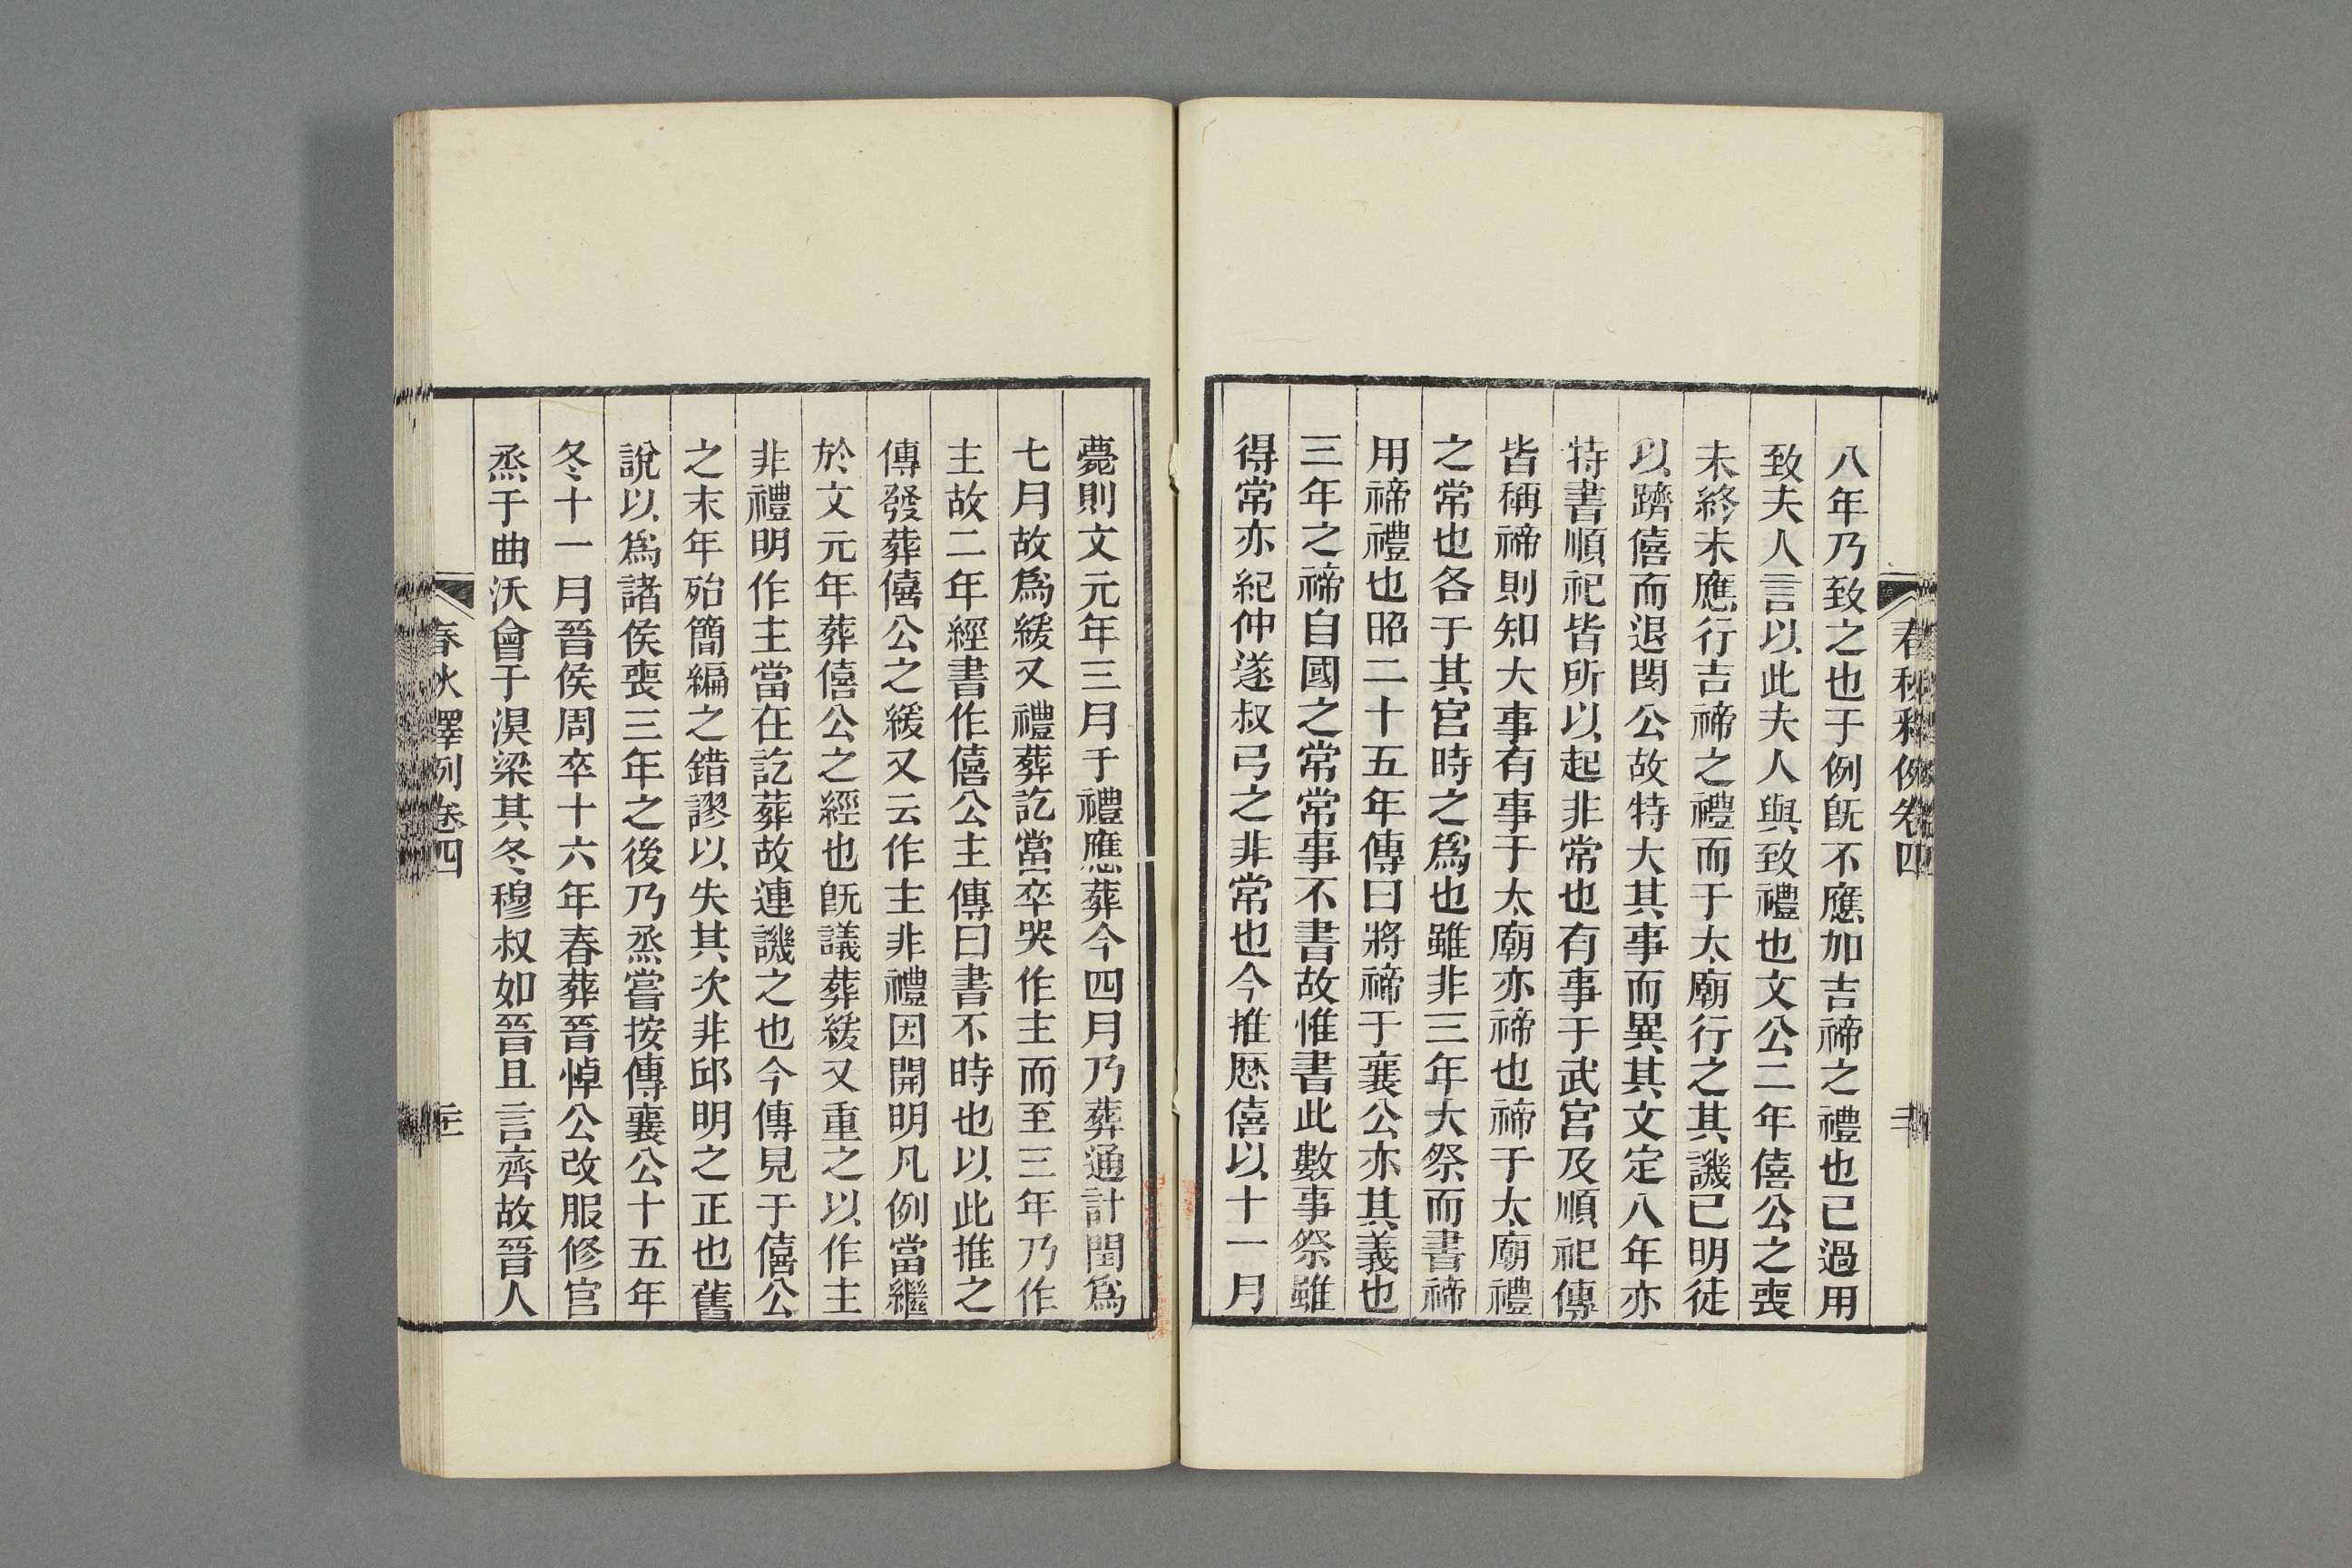 春秋釋例卷四
八年乃致之也于例旣不應加吉禘之禮也已過用
致夫人言以此夫人與致禮也文公二年僖公之喪
未終未應行吉禘之禮而于太廟行之其譏已明徒
以躋僖而退閔公故特大其事而異其文定八年亦
特書順祀皆所以起非常也有事于武宮及順祀傳
皆稱禘則知大事有事于太廟亦禘也禘于太廟禮
之常也各于其宮時之爲也雖非三年大祭而書禘
用禘禮也昭二十五年傳曰將禘于襄公亦其義也
三年之禘自國之常常事不書故惟書此數事祭雖
得常亦紀仲遂叔弓之非常也今推厯僖以十一月
薨則文元年三月于禮應葬今四月乃葬通計閏爲
七月故爲緩又禮葬訖當卒哭作主而至三年乃作
主故二年經書作僖公主傳曰書不時也以此推之
傳發葬僖公之緩又云作主非禮因開明凡例當繼
於文元年葬僖公之經也旣議葬緩又重之以作主
非禮明作主當在訖葬故連譏之也今傳見于僖公
之末年殆簡編之錯謬以失其次非邱明之正也舊
說以爲諸侯喪三年之後乃烝嘗按傳襄公十五年
冬十一月晉侯周卒十六年春葬晉悼公改服修官
烝于曲沃會于湨梁其冬穆叔如晉且言齊故晉人
春秋釋例卷四